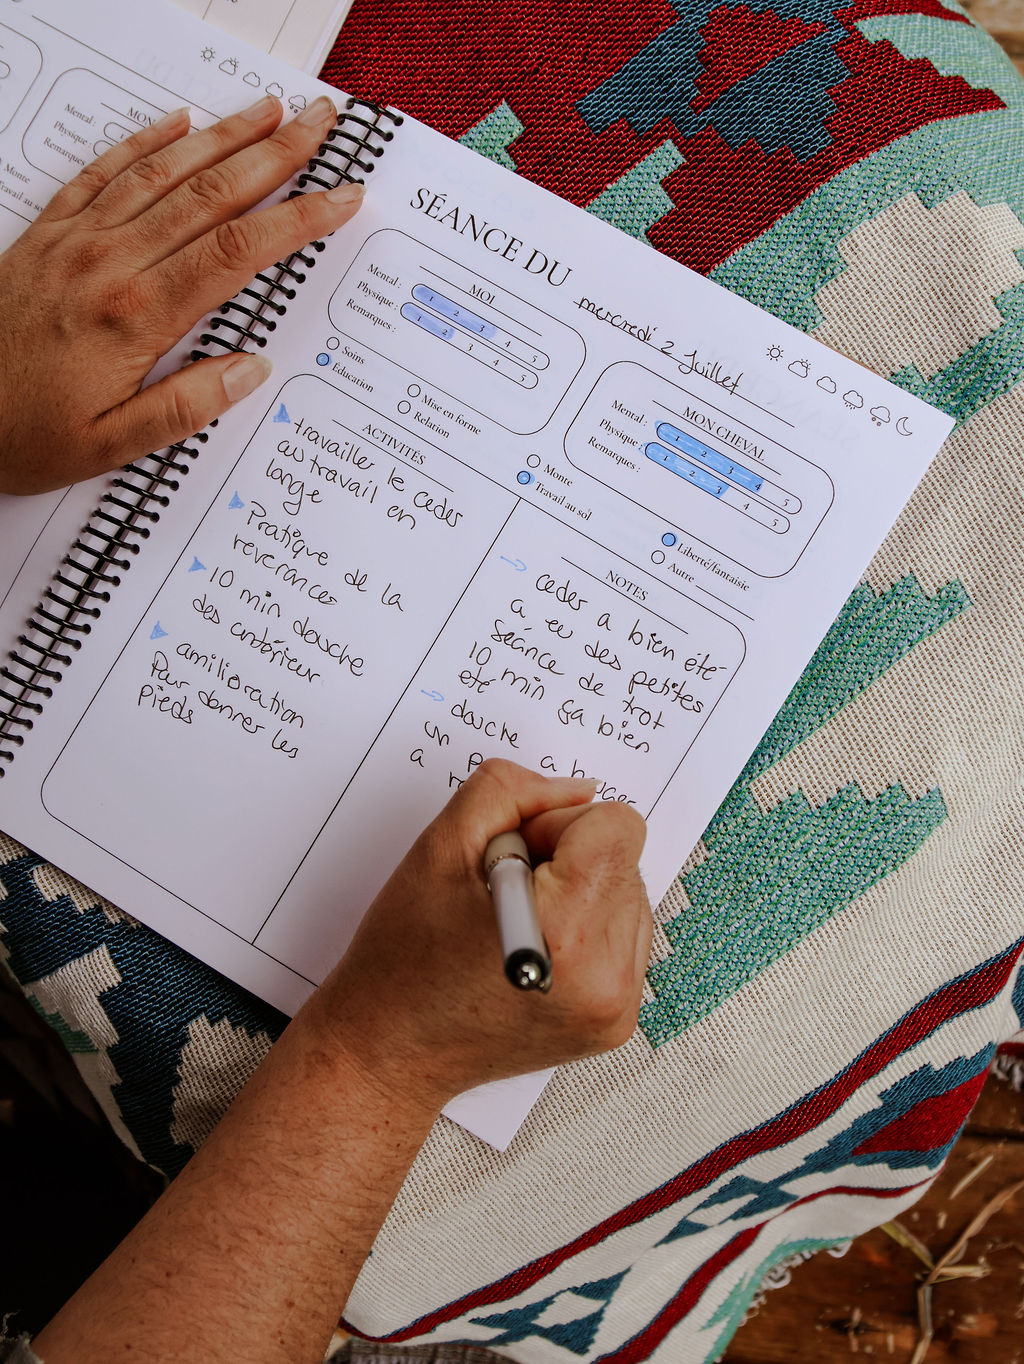 MON
Mental :
Physique :
Remarques
Monte
Travail au sol
SÉANCE DU
mercredi 2 Juillet
MOI
Mental : 1 2 3 4 5
Physique : 1 2 3 4 5
Remarques :
MON CHEVAL
Mental : 1 2 3 4 5
Physique : 1 2 3 4 5
Remarques :
Soins
Éducation
Mise en forme
Relation
Monte
Travail au sol
Liberté/fantaisie
Autre
ACTIVITÉS
travailler le ceder
au travail en
longe
Pratique de la
reverances
10 min douche
des antérieur
amilioration
Pour donner les
pieds
NOTES
ceder a bien été
a eu des petites
séance de trot
10 min ça bien
été
douche a bouger
un
a